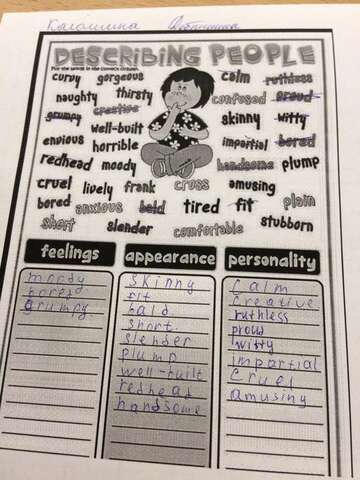 DESCRIBING PEOPLE
Put the words in the correct column.
curvy gorgeous calm ruthless
naughty thirsty confused proud
grumpy creative skinny witty
well-built impartial bored
envious horrible
redhead moody handsome plump
cruel lively frank cross amusing
bored anxious bald tired fit plain
short slender comfortable stubborn
feelings appearance personality
moody skinny calm
bored fit creative
grumpy bald ruthless
short proud
slender witty
plump impartial
well-built cruel
redhead amusing
handsome